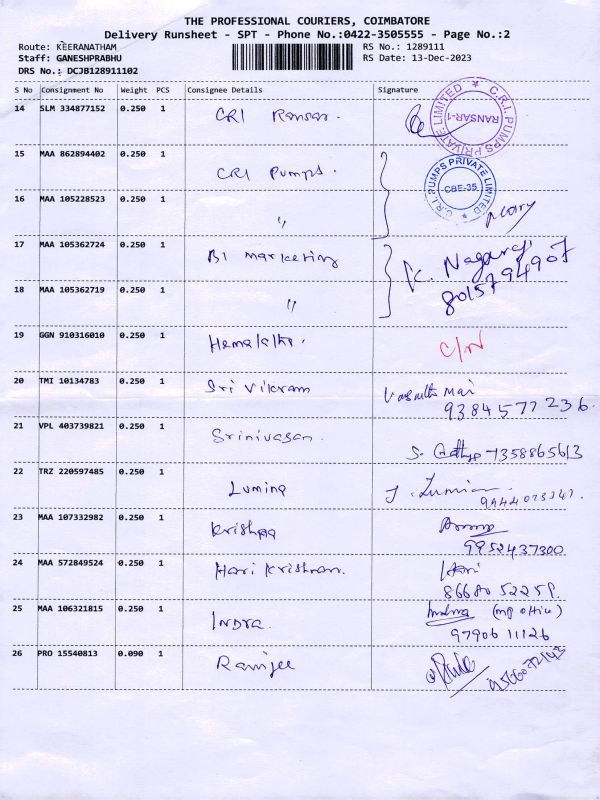 THE PROFESSIONAL COURIERS, COIMBATORE
Delivery Runsheet - SPT - Phone No.:0422-3505555 - Page No.:2
Route: KEERANATHAM RS No.: 1289111
Staff: GANESHPRABHU RS Date: 13-Dec-2023
DRS No.: DCJB128911102
S No Consignment No Weight PCS Consignee Details Signature
14 SLM 334877152 0.250 1 CRI Ransar.
C.R.I. PUMPS PRIVATE LIMITED
RANSAR-1
15 MAA 862894402 0.250 1 CRI Pumps.
C.R.I. PUMPS PRIVATE LIMITED
CBE-35
16 MAA 105228523 0.250 1 "
17 MAA 105362724 0.250 1 BI marketing K. Nagaraj
18 MAA 105362719 0.250 1 " 8015794907
19 GGN 910316010 0.250 1 Hemalatha. C/N
20 TMI 10134783 0.250 1 Sri Vikram
9384577236.
21 VPL 403739821 0.250 1 Srinivasan. 7358865613
22 TRZ 220597485 0.250 1 Lumina J. Lumina
23 MAA 107332982 0.250 1 Krishna
9952437300
24 MAA 572849524 0.250 1 Hari Krishnan. Hari
86680 52259.
25 MAA 106321815 0.250 1 INDRA. (mp office)
97906 11126
26 PRO 15540813 0.090 1 Ramjee